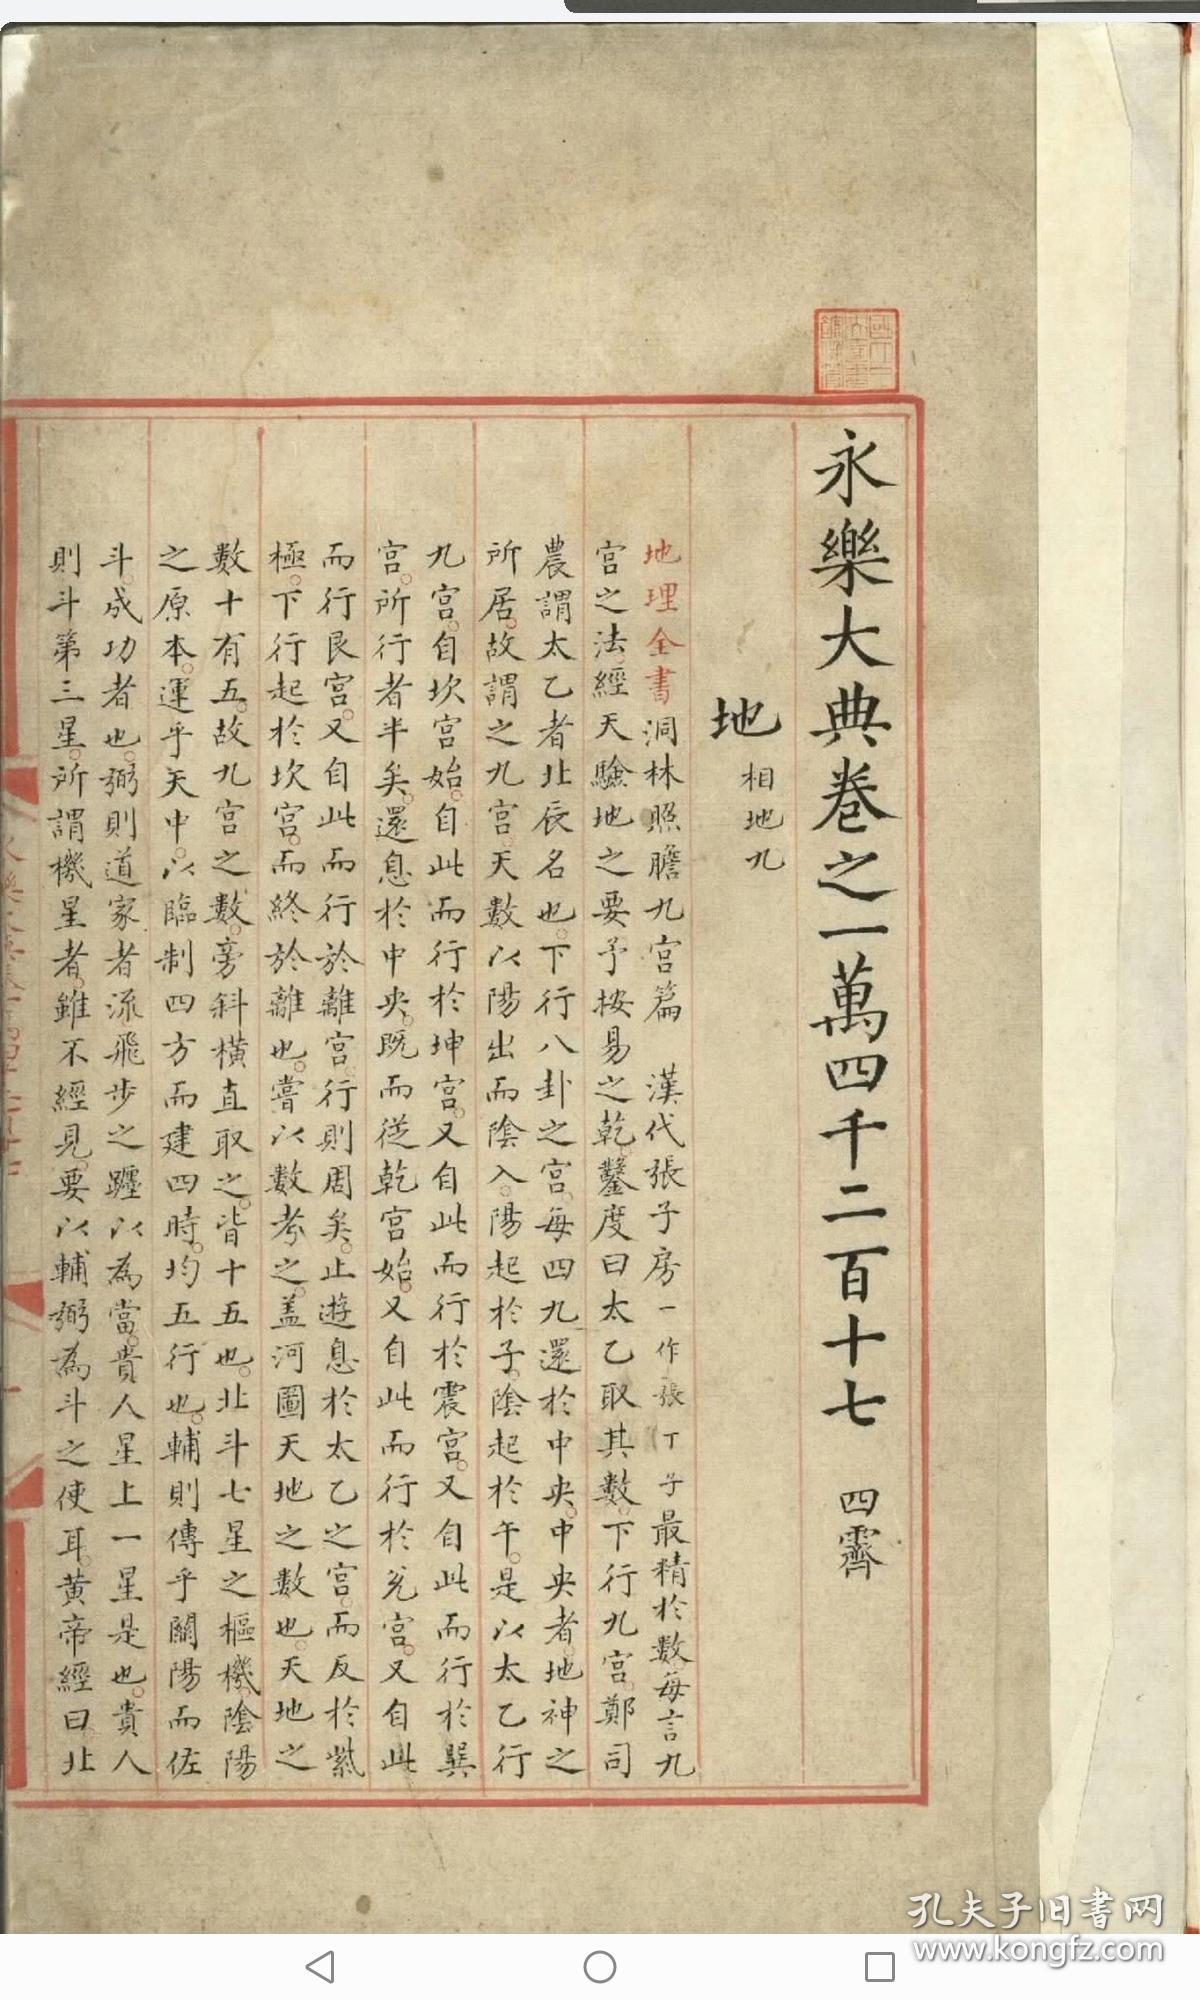 永樂大典卷之一萬四千二百十七 四霽
地 相地九
地理全書洞林照膽九宮篇 漢代張子房一作張丁子最精於數每言九
宮之法經天驗地之要予按易之乾鑿度曰太乙取其數下行九宮鄭司
農謂太乙者北辰名也下行八卦之宮每四九還於中央中央者地神之
所居故謂之九宮天數以陽出而陰入陽起於子陰起於午是以太乙行
九宮自坎宮始自此而行於坤宮又自此而行於震宮又自此而行於巽
宮所行者半矣還息於中央既而從乾宮始又自此而行於兌宮又自此
而行艮宮又自此而行於離宮行則周矣止遊息於太乙之宮而反於紫
極下行起於坎宮而終於離也嘗以數考之蓋河圖天地之數也天地之
數十有五故九宮之數旁斜橫直取之皆十五也北斗七星之樞機陰陽
之原本運乎天中以臨制四方而建四時均五行也輔則傳乎關陽而佐
斗成功者也弼則道家者流飛步之躔以為當貴人星上一星是也貴人
則斗第三星所謂機星者雖不經見要以輔弼為斗之使耳黃帝經曰北
孔夫子旧书网
www.kongfz.com